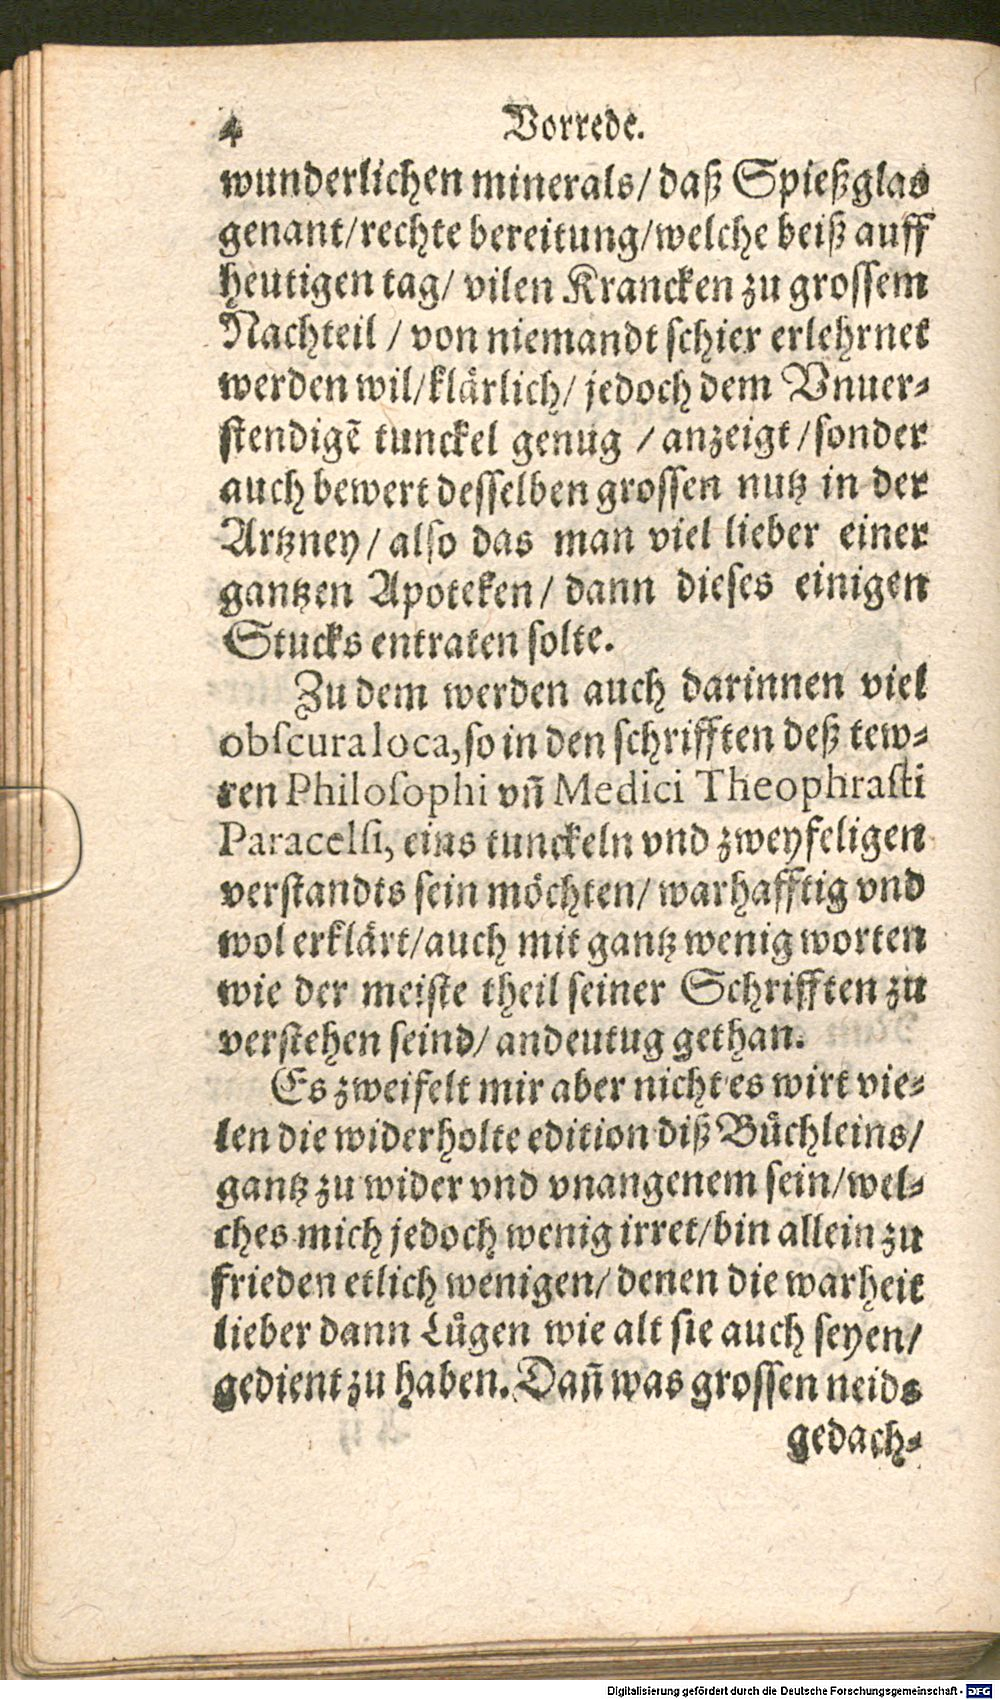 4 Vorrede.
wunderlichen minerals/ daß Spießglas
genant/rechte bereitung/welche beiß auff
heutigen tag/ vilen Krancken zu grossem
Nachteil / von niemandt schier erlehrnet
werden wil/klärlich/ jedoch dem Vnuer⸗
stendigẽ tunckel genug / anzeigt /sonder
auch bewert desselben grossen nutz in der
Artzney/ also das man viel lieber einer
gantzen Apoteken/ dann dieses einigen
Stucks entraten solte.
Zu dem werden auch darinnen viel
obscura loca, so in den schrifften deß tew⸗
ren Philosophi vñ Medici Theophrasti
Paracelsi, eins tunckeln vnd zweyfeligen
verstandts sein möchten/ warhafftig vnd
wol erklärt/auch mit gantz wenig worten
wie der meiste theil seiner Schrifften zu
verstehen seind/ andeutug gethan.
Es zweifelt mir aber nicht es wirt vie⸗
len die widerholte edition diß Bůchleins/
gantz zu wider vnd vnangenem sein/wel⸗
ches mich jedoch wenig irret/bin allein zu
frieden etlich wenigen/ denen die warheit
lieber dann Lůgen wie alt sie auch seyen/
gedient zu haben. Dañ was grossen neids
gedach⸗
Digitalisierung gefördert durch die Deutsche Forschungsgemeinschaft - DFG